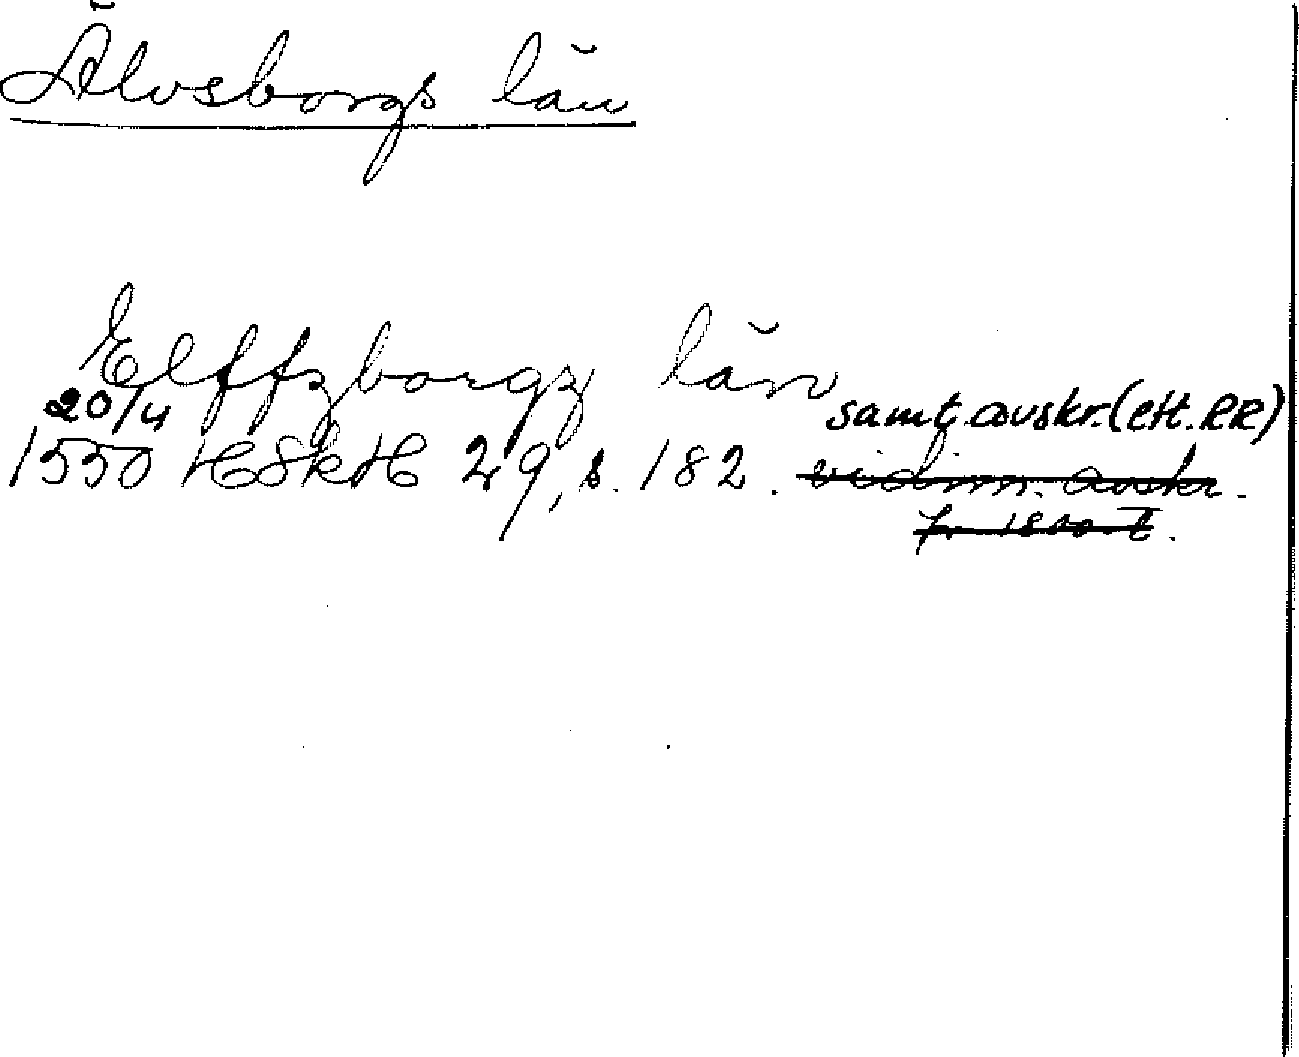 Älvsborgs län
Elffzborgz län
20/4 samt. avskr. (eft. RR)
1550 HSkH 29, s. 182. vidim. avskr.
fr. 1800-t.